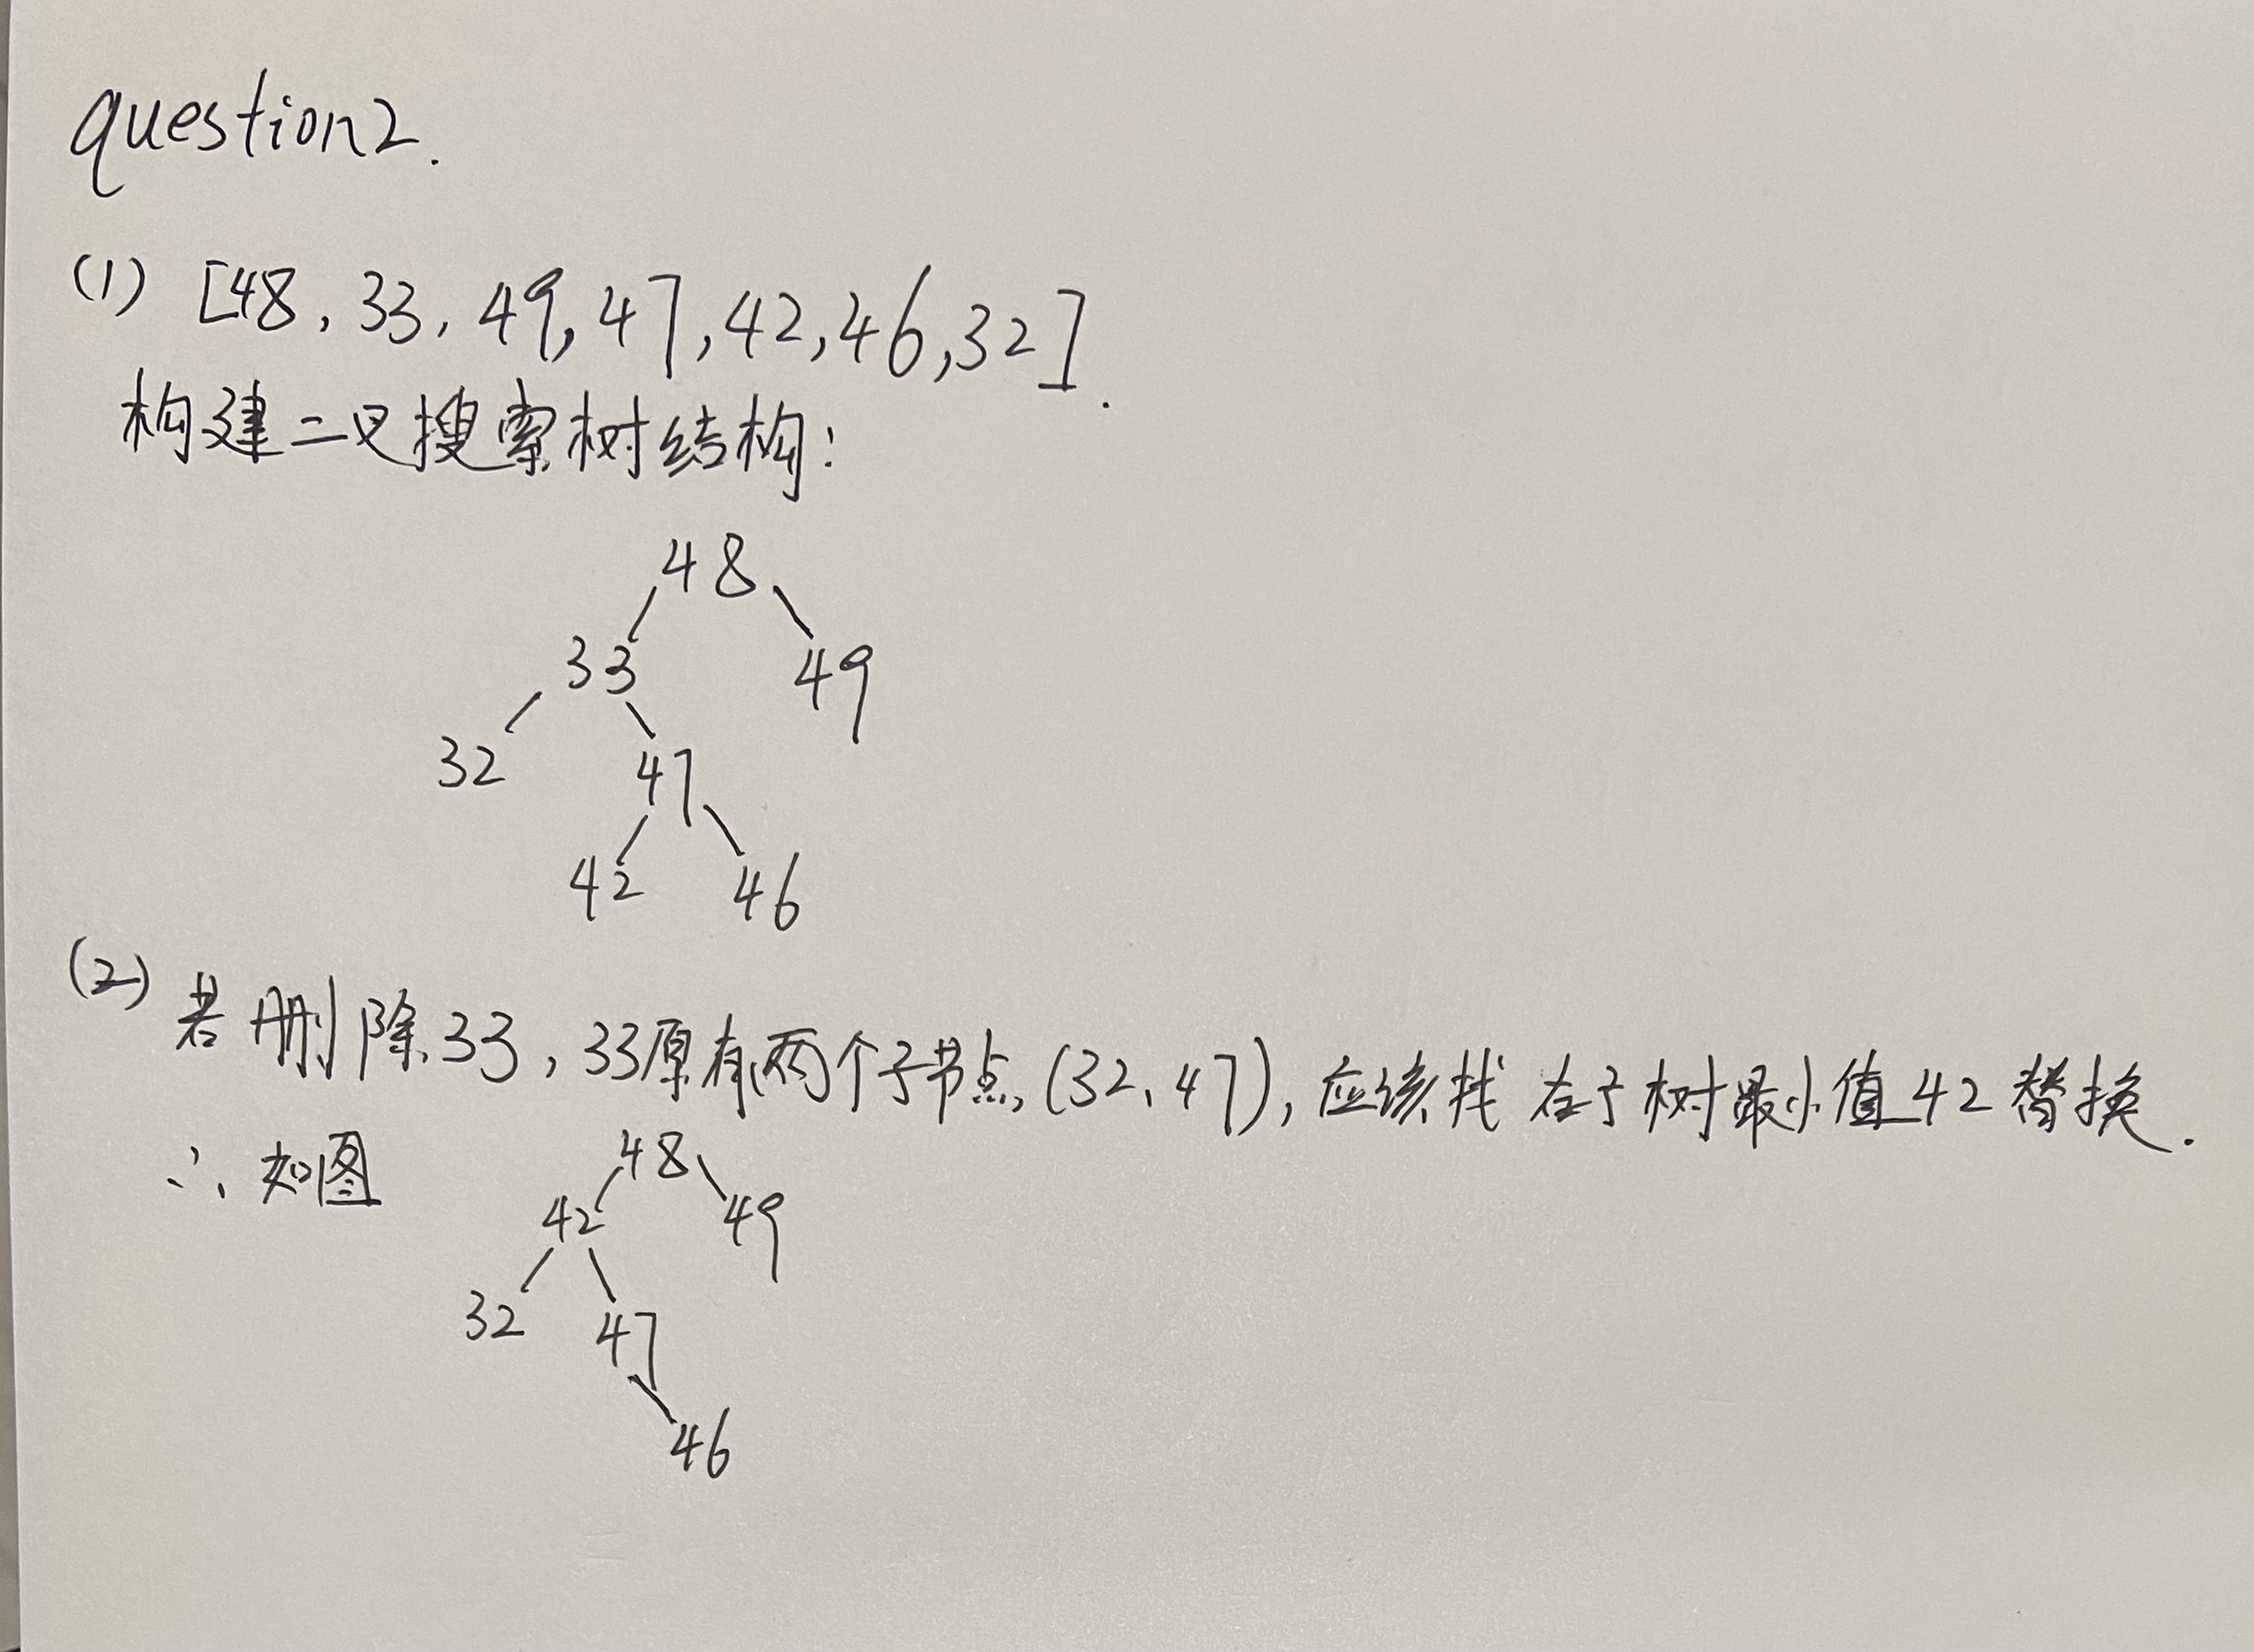 question2.
(1) [48, 33, 49, 47, 42, 46, 32].
构建二叉搜索树结构:
48
33 49
32 47
42 46
(2) 若删除33, 33原有两个子节点(32、47), 应该找右子树最小值42替换.
∴ 如图
48
42 49
32 47
46